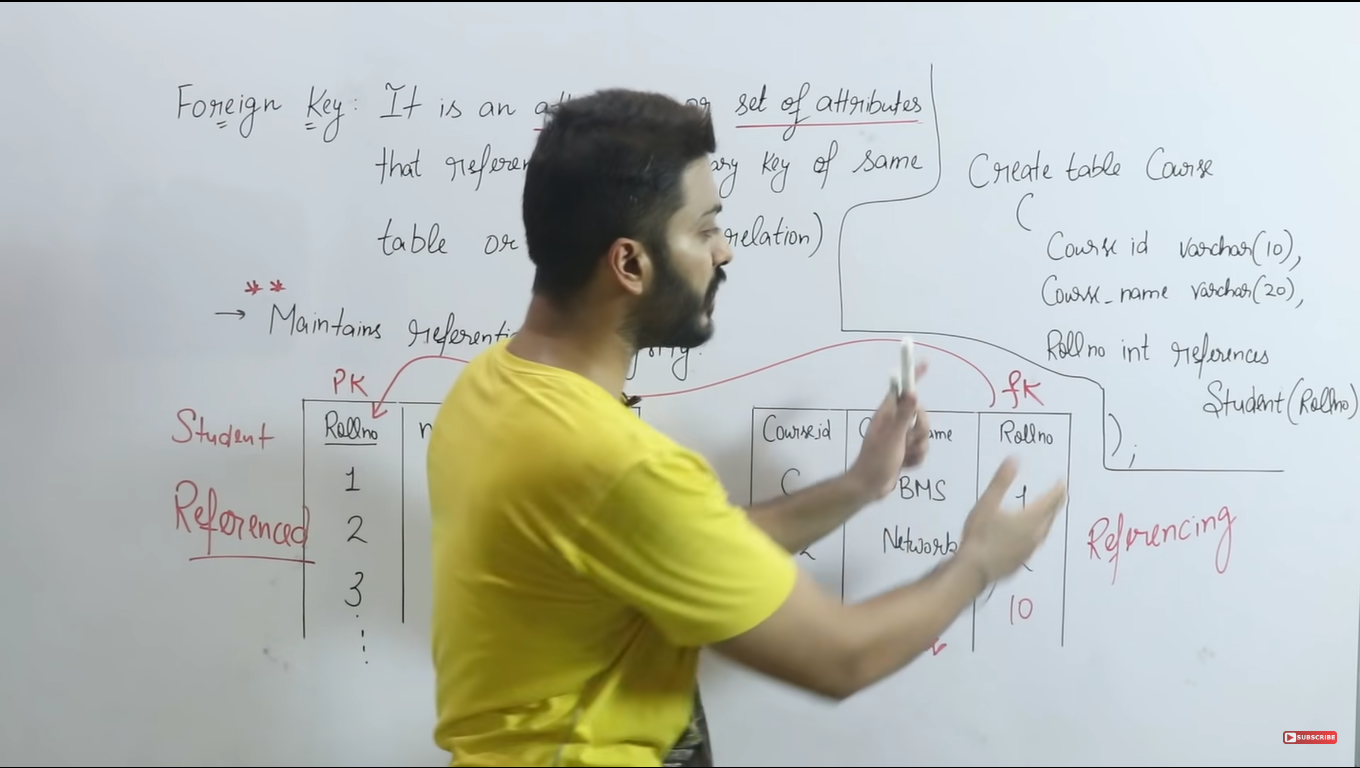 Foreign Key: It is an or set of attributes
that key of same
table or relation)
**
→ Maintains
Create table Course
(
Course id varchar(10),
Course_name varchar(20),
Rollno int references
Student(Rollno)
);
PK
Student
Rollno
1
2
3
Referenced
fK
Course id Rollno
BMS 1
Network
10
Referencing
SUBSCRIBE